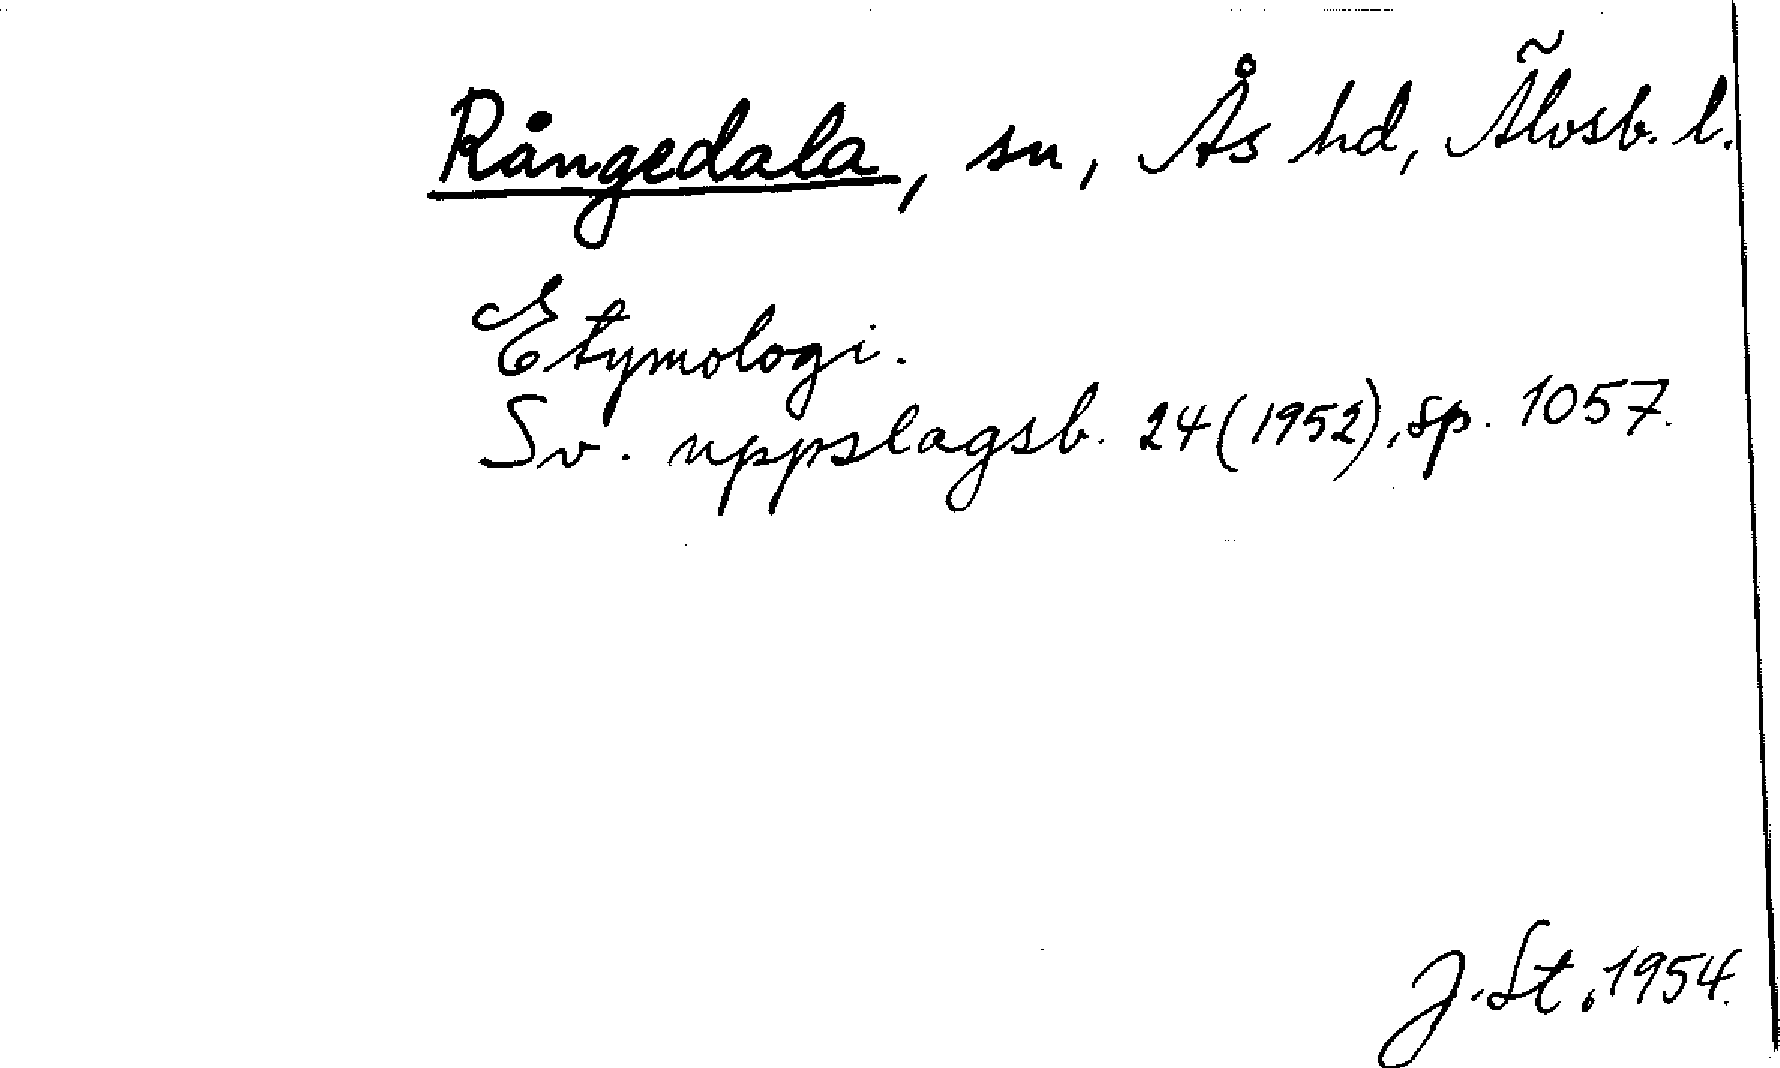 Rångedala, sn, Ås hd, Älvsb. l.
Etymologi.
Sv. uppslagsb. 24 (1952), sp. 1057.
J. St. 1954.